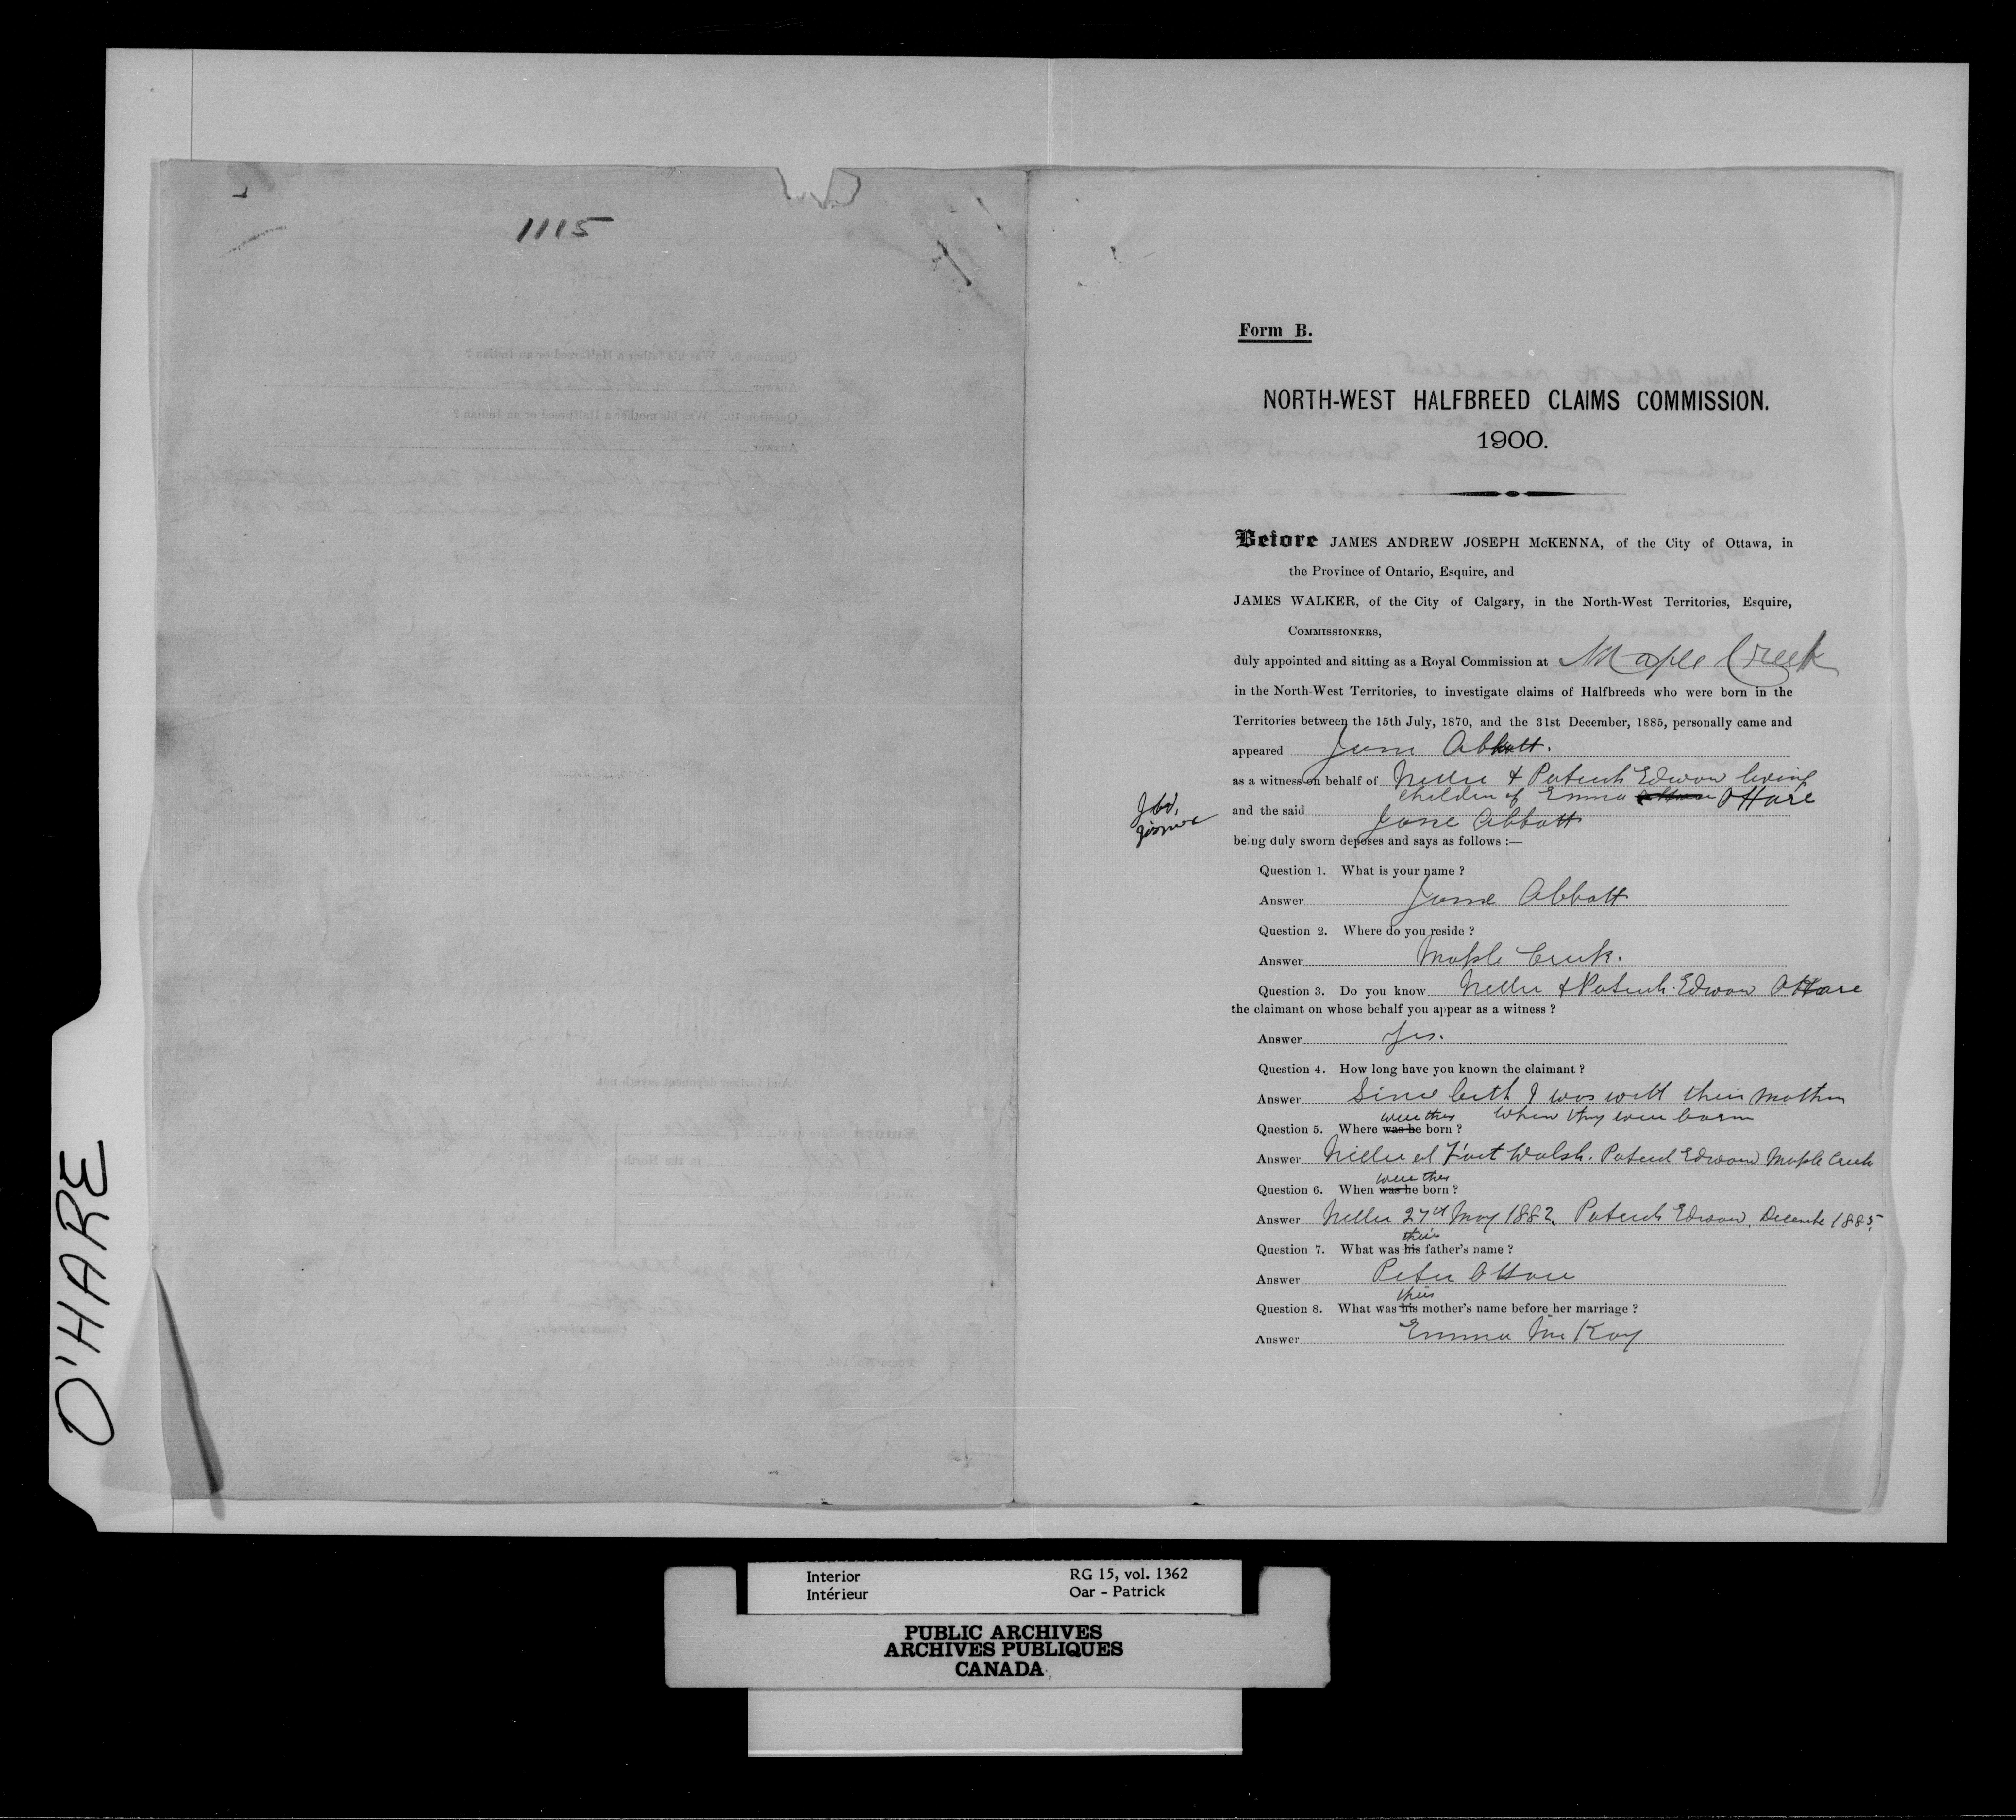 1115
O'HARE
Form B.
NORTH-WEST HALFBREED CLAIMS COMMISSION.
1900.
Before JAMES ANDREW JOSEPH McKENNA, of the City of Ottawa, in
the Province of Ontario, Esquire, and
JAMES WALKER, of the City of Calgary, in the North-West Territories, Esquire,
COMMISSIONERS,
duly appointed and sitting as a Royal Commission at Maple Creek
in the North-West Territories, to investigate claims of Halfbreeds who were born in the
Territories between the 15th July, 1870, and the 31st December, 1885, personally came and
appeared Jane Abbott.
as a witness on behalf of Nellie & Patrick Edward living
children of Emma O'Hare
and the said Jane Abbott
being duly sworn deposes and says as follows :—
Question 1. What is your name ?
Answer Jane Abbott
Question 2. Where do you reside ?
Answer Maple Creek.
Question 3. Do you know Nellie & Patrick Edward O'Hare
the claimant on whose behalf you appear as a witness ?
Answer Yes.
Question 4. How long have you known the claimant ?
Answer Since birth I was with their mother
when they were born
were they
Question 5. Where was he born ?
Answer Nellie at Fort Walsh. Patrick Edward Maple Creek
were they
Question 6. When was he born ?
Answer Nellie 27th May 1882, Patrick Edward, December 1885.
their
Question 7. What was his father's name ?
Answer Peter O'Hare
their
Question 8. What was his mother's name before her marriage ?
Answer Emma McKay
Interior
Intérieur
RG 15, vol. 1362
Oar - Patrick
PUBLIC ARCHIVES
ARCHIVES PUBLIQUES
CANADA